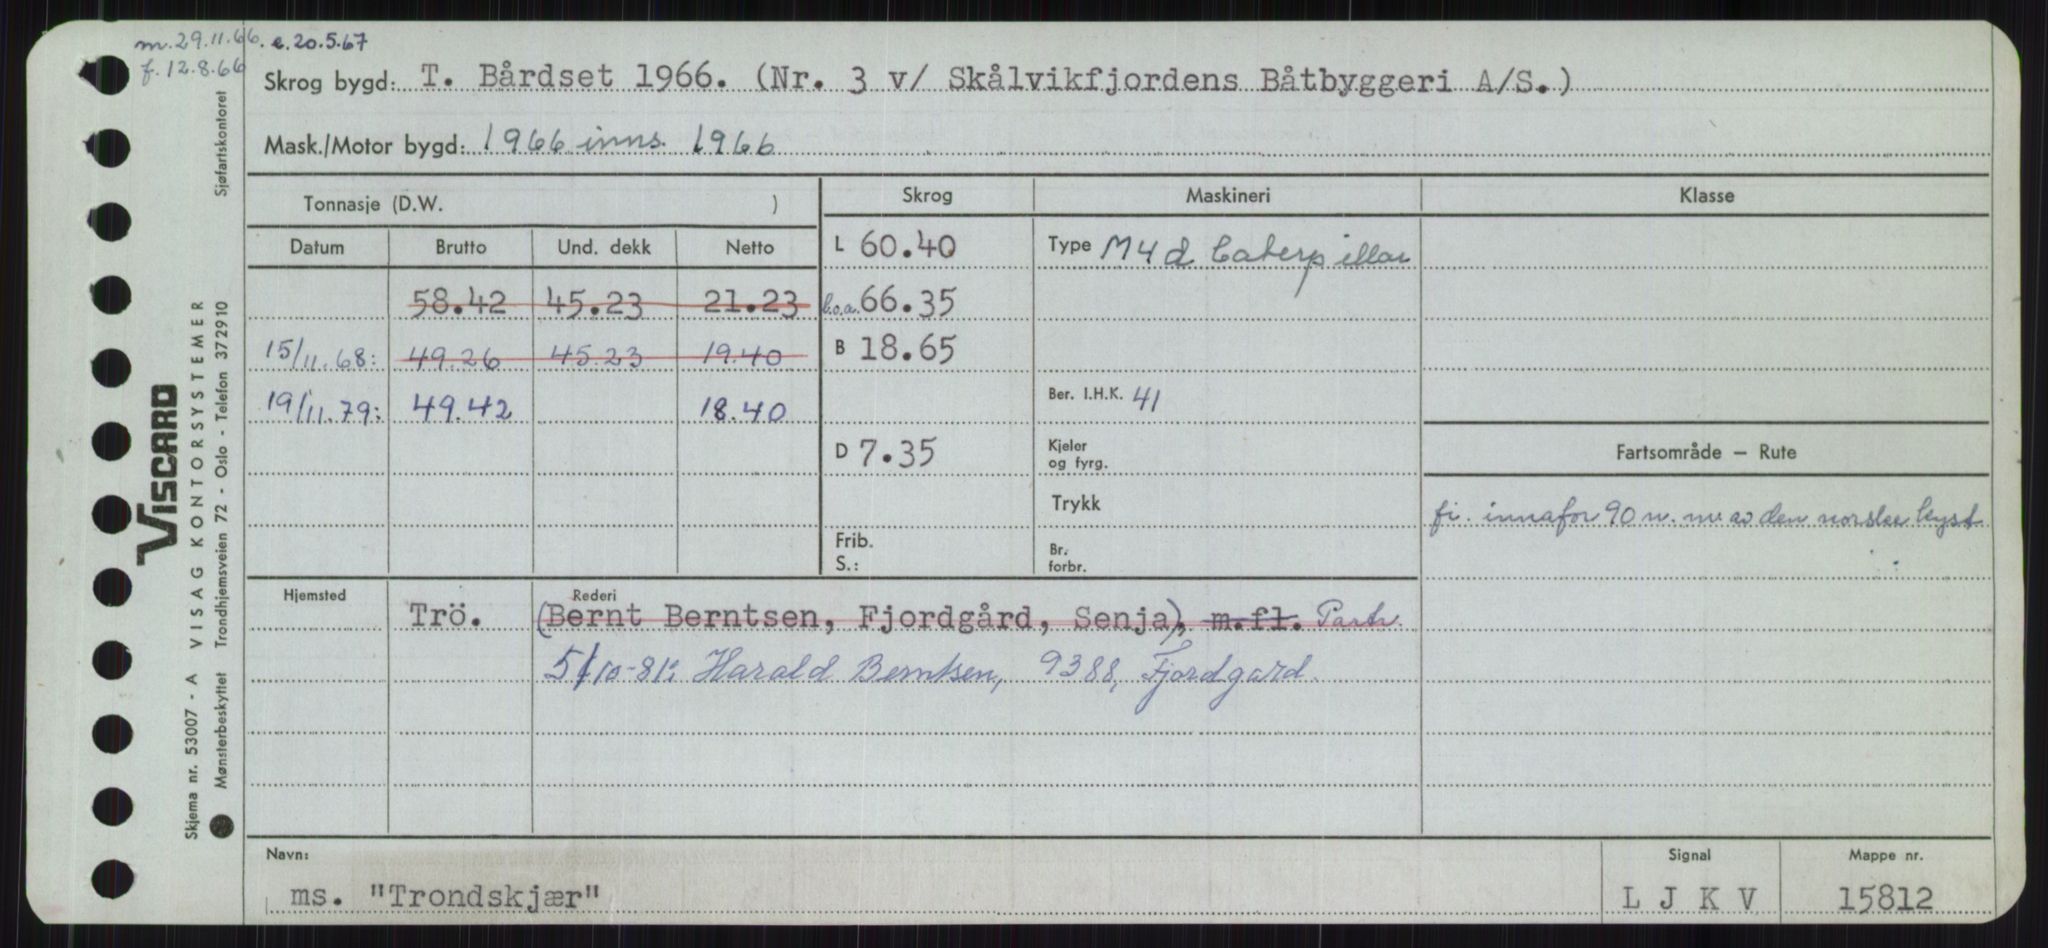 m. 29.11.66. e. 20.5.67
f. 12.8.66
Skrog bygd: T. Bårdset 1966. (Nr. 3 v/ Skålvikfjordens Båtbyggeri A/S.)
Mask./Motor bygd: 1966 inns. 1966
Tonnasje (D.W. )
Skrog Maskineri Klasse
Datum Brutto Und. dekk Netto
L 60.40 Type M4d Caterpillar
58.42 45.23 21.23 l.o.a. 66.35
15/11.68: 49.26 45.23 19.40 B 18.65
19/11.79: 49.42 18.40 Ber. I.H.K. 41
D 7.35 Kjeler og fyrg.
Fartsområde – Rute
Trykk
fi. innafor 90 n. m av den norske kyst
Frib.
S.:
Br.
forbr.
Hjemsted Rederi
Trö. (Bernt Berntsen, Fjordgård, Senja), m.fl. Partr.
5/10-81: Harald Berntsen, 9388, Fjordgard.
Navn: Signal Mappe nr.
ms. "Trondskjær" L J K V 15812
VISCARD
Skjema nr. 53007 - A VISAG KONTORSYSTEMER
Mønsterbeskyttet Trondhjemsveien 72 - Oslo - Telefon 372910 Sjøfartskontoret